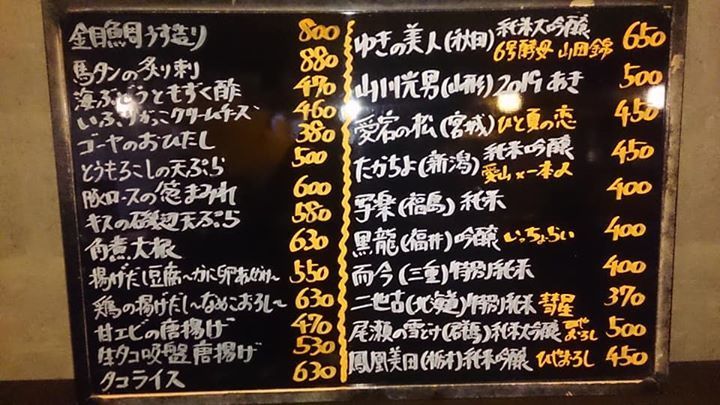 金目鯛うす造り 800
馬タンの炙り刺 880
海ぶどうともずく酢 470
いぶりがっこクリームチーズ 460
ゴーヤのおひたし 380
とうもろこしの天ぷら 500
豚ロースの葱まみれ 600
キスの磯辺天ぷら 580
角煮大根 630
揚げだし豆腐〜かに卵あんかけ〜 550
鶏の揚げだし〜なめこおろし〜 630
甘エビの唐揚げ 470
生タコ吸盤唐揚げ 530
タコライス 630
ゆきの美人(秋田)純米大吟醸 6号酵母 山田錦 650
山川光男(山形)2019 あき 500
愛宕の松(宮城)ひと夏の恋 450
たかちよ(新潟)純米吟醸 愛山×一本〆 450
写楽(福島)純米 400
黒龍(福井)吟醸 いっちょらい 400
而今(三重)特別純米 400
二世古(北海道)特別純米 彗星 370
尾瀬の雪どけ(群馬)純米大吟醸 ひやおろし 500
鳳凰美田(栃木)純米吟醸 ひやおろし 450